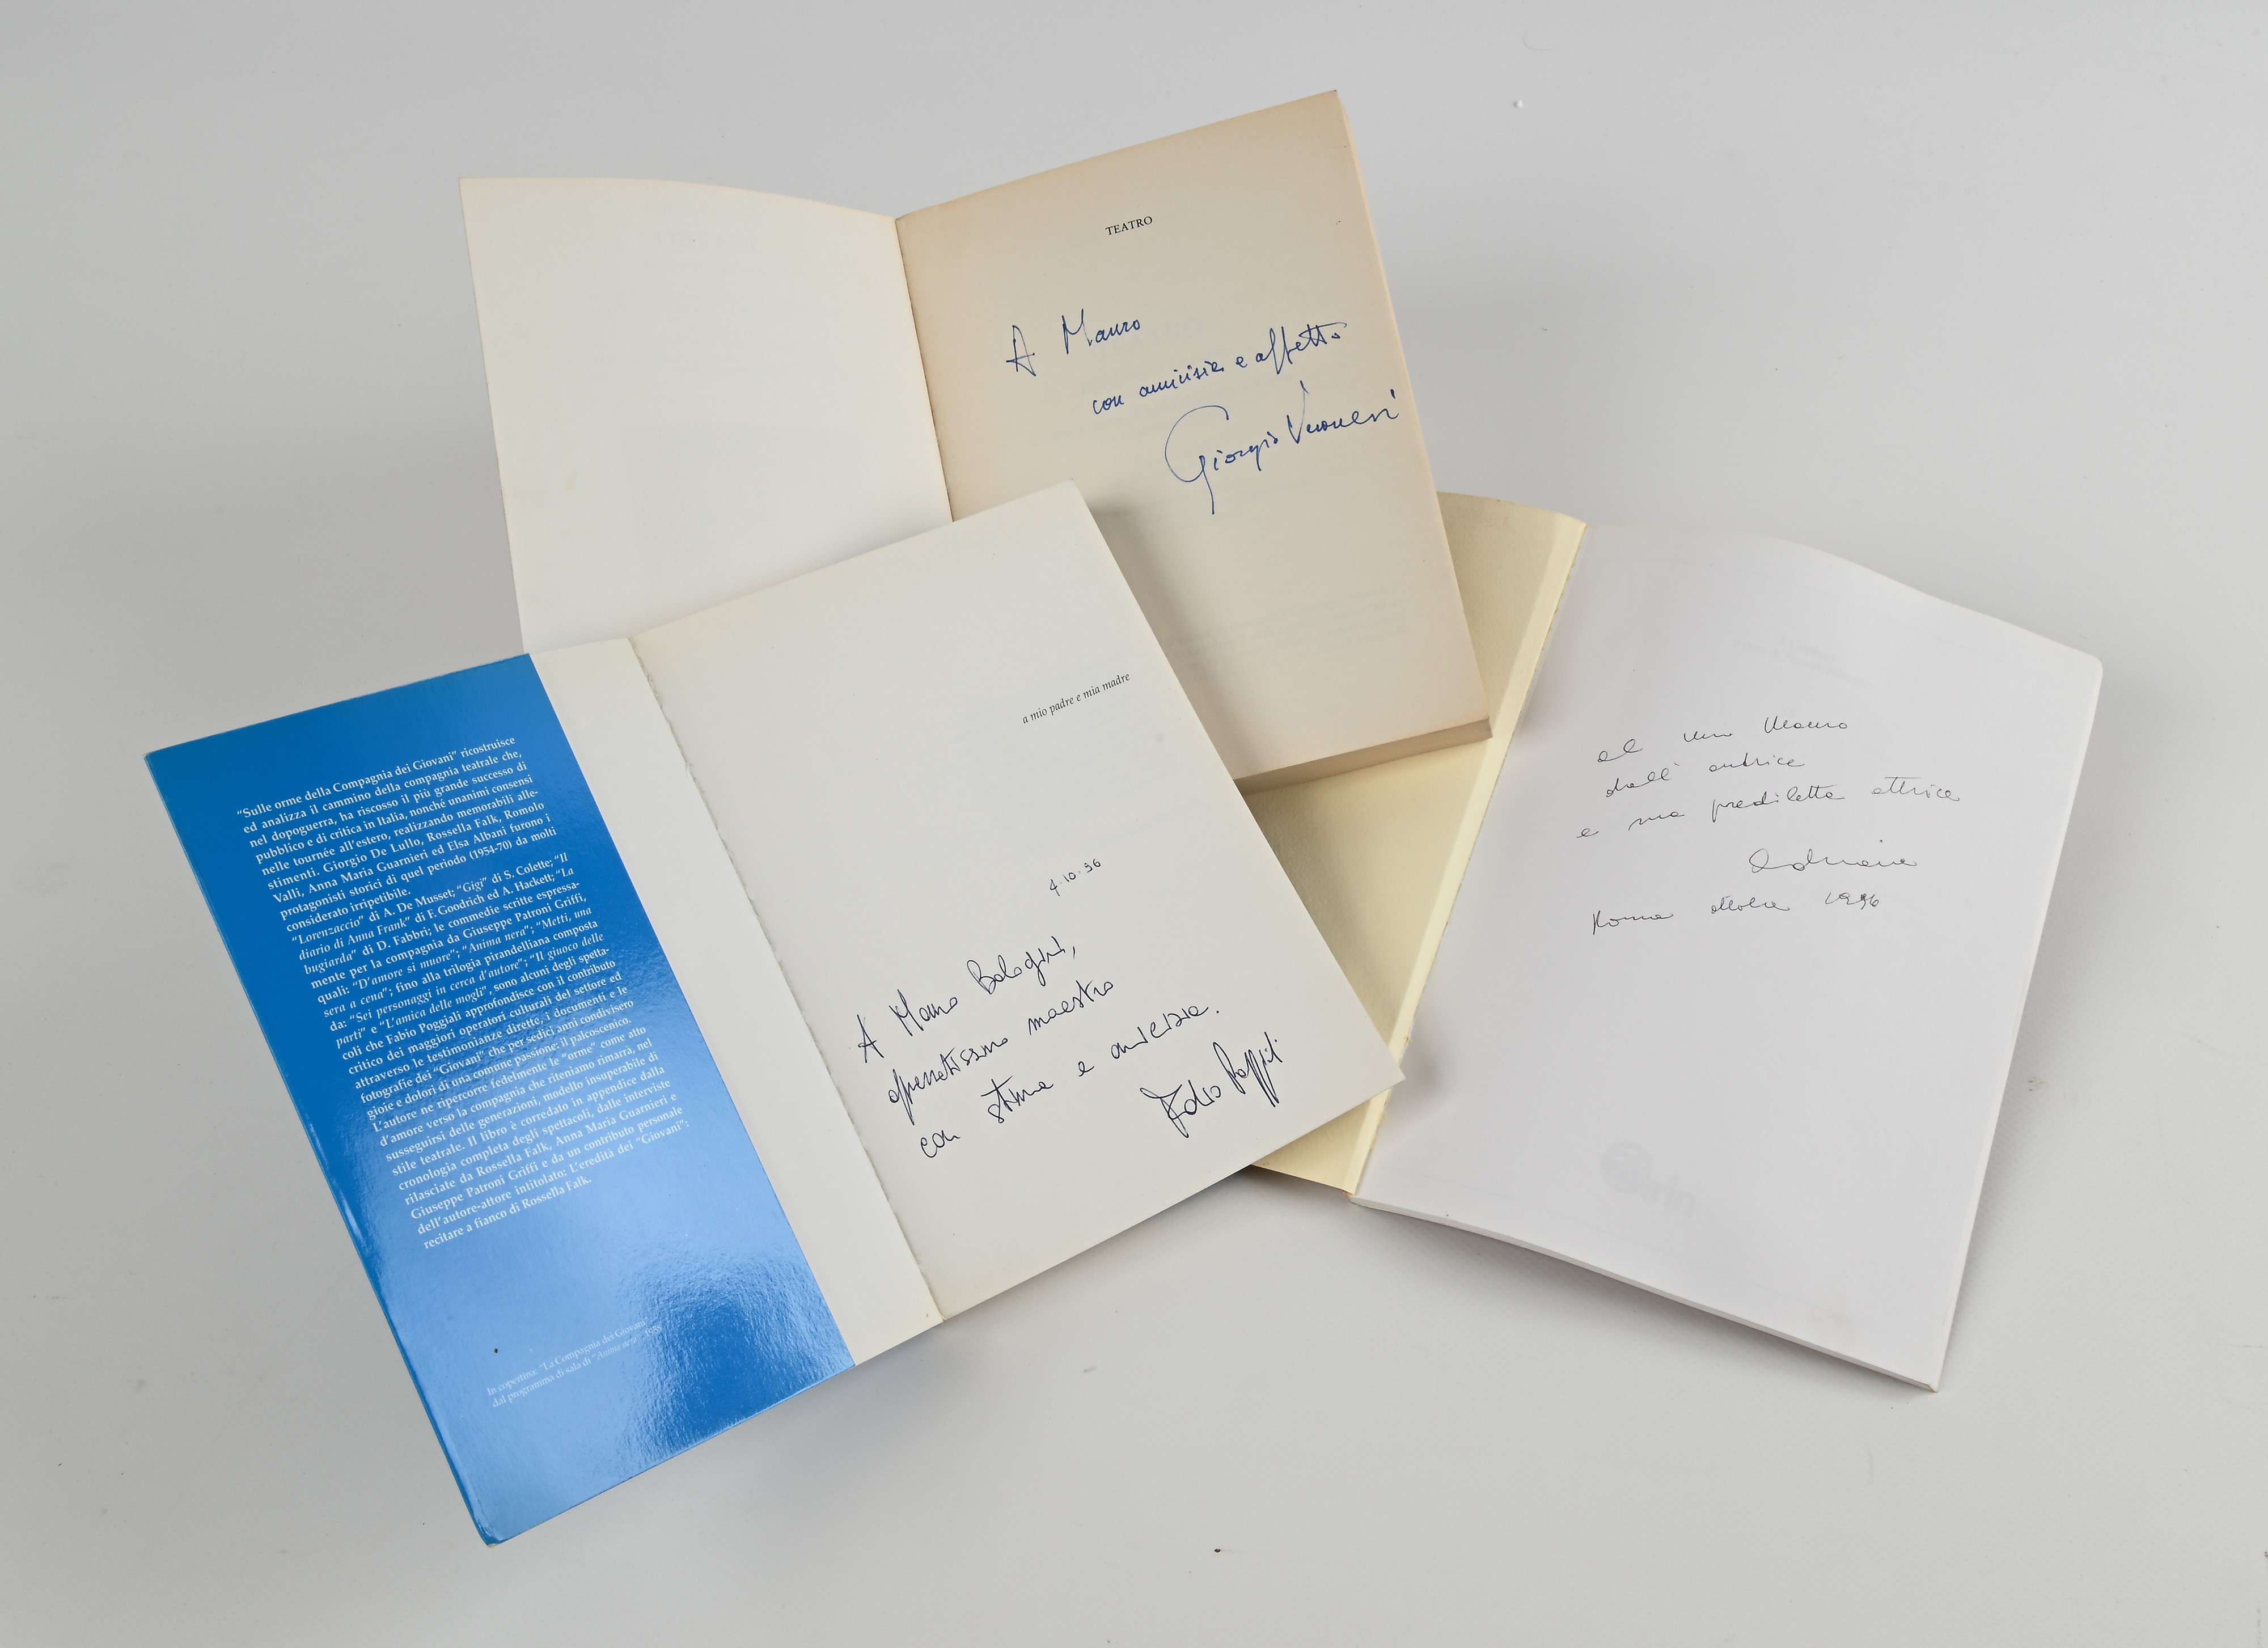 TEATRO
A Mauro
con amicizia e affetto
Giorgio Veronesi
a mio padre e mia madre
4.10.96
A Mauro Bolognini,
apprezzatissimo maestro
con stima e amicizia.
Fabio Poggiali
"Sulle orme della Compagnia dei Giovani" ricostruisce
ed analizza il cammino della compagnia teatrale che,
nel dopoguerra, ha riscosso il più grande successo di
pubblico e di critica in Italia, nonché unanimi consensi
nelle tournée all'estero, realizzando memorabili alle-
stimenti. Giorgio De Lullo, Rossella Falk, Romolo
Valli, Anna Maria Guarnieri ed Elsa Albani furono i
protagonisti storici di quel periodo (1954-70) da molti
considerato irripetibile.
"Lorenzaccio" di A. De Musset; "Gigi" di S. Colette; "Il
diario di Anna Frank" di F. Goodrich ed A. Hackett; "La
bugiarda" di D. Fabbri; le commedie scritte espressa-
mente per la compagnia da Giuseppe Patroni Griffi,
quali: "D'amore si muore"; "Anima nera"; "Metti, una
sera a cena"; fino alla trilogia pirandelliana composta
da: "Sei personaggi in cerca d'autore"; "Il giuoco delle
parti" e "L'amica delle mogli", sono alcuni degli spetta-
coli che Fabio Poggiali approfondisce con il contributo
critico dei maggiori operatori culturali del settore ed
attraverso le testimonianze dirette, i documenti e le
fotografie dei "Giovani" che per sedici anni condivisero
gioie e dolori di una comune passione: il palcoscenico.
L'autore ne ripercorre fedelmente le "orme" come atto
d'amore verso la compagnia che riteniamo rimarrà, nel
susseguirsi delle generazioni, modello insuperabile di
stile teatrale. Il libro è corredato in appendice dalla
cronologia completa degli spettacoli, dalle interviste
rilasciate da Rossella Falk, Anna Maria Guarnieri e
Giuseppe Patroni Griffi e da un contributo personale
dell'autore-attore intitolato: L'eredità dei "Giovani":
recitare a fianco di Rossella Falk.
In copertina: "La Compagnia dei Giovani"
dal programma di sala di "Anima nera"
al mio Mauro
dall'autrice
e sua prediletta attrice
Adriana
Roma ottobre 1996